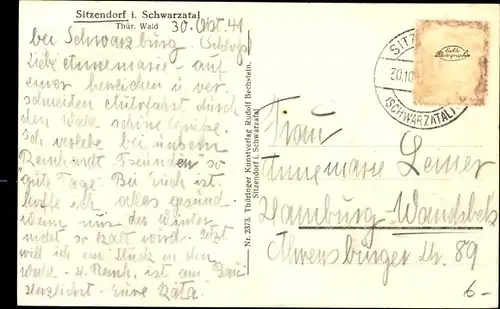 Sitzendorf i. Schwarzatal
Thür. Wald 30. Okt. 41
bei Schwarzburg (Schloss)
Liebe Annemarie - auf
einer herrlichen u ver
schneiten Autofahrt durch
den Wald schöne Grüße.
Ich verlebe bei unsern
Reinhardt Freunden so
"gute Tage". Bei Euch ist
hoffe ich alles gesund.
Wenn nur der Winter
nicht so kalt wird. Jetzt
will ich ein Stück in den
Wald - H. Reinh. ist am Bau
Herzlichst - Eure Käta
Nr. 2373 Thüringer Kunstverlag Rudolf Bechstein,
Sitzendorf i. Schwarzatal
SITZ
30.10
(SCHWARZATAL)
Echte
Photographie
Frau
Annemarie
Hamburg Wandsbek
Ahrensburger Str. 89
6-